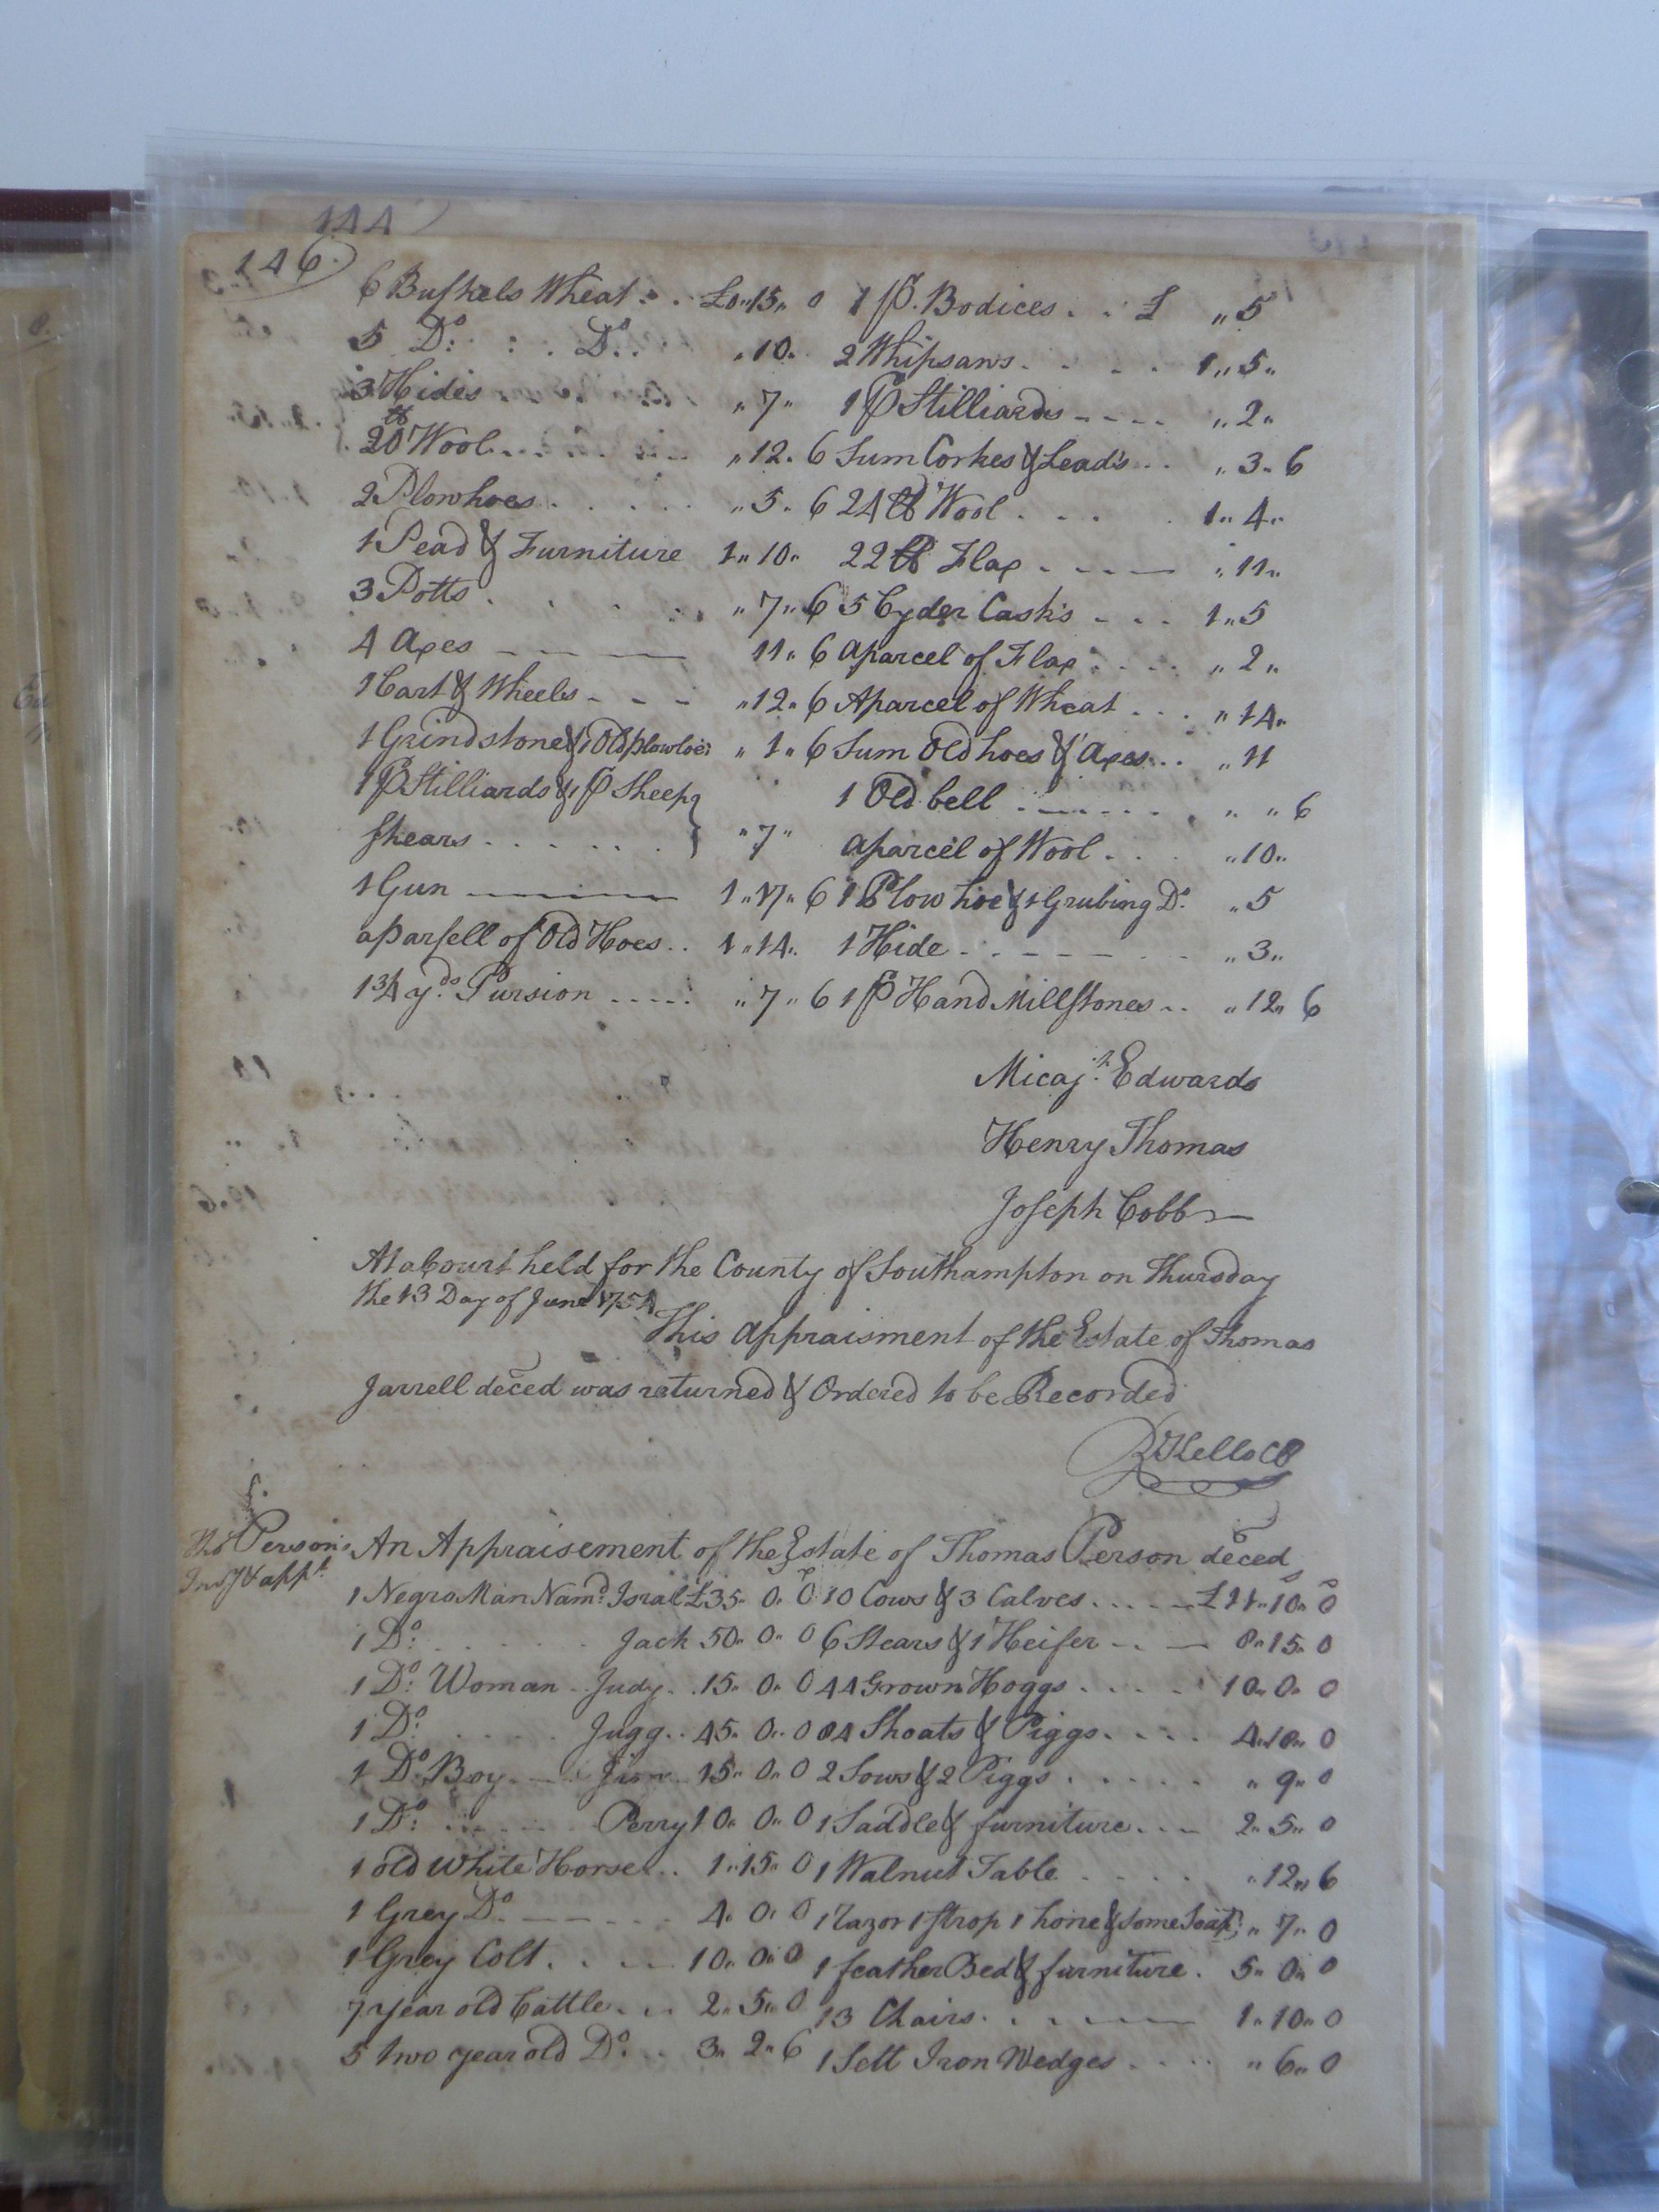 144
146
6 Bushels Wheat . . £0„15„ 0 1 pr. Bodices . . £ „ 5
5 Do: : . Do. . „ 10„ 2 Whipsaws . . . . 1„ 5„
3 Hides „ 7„ 1 pr Stilliards - - - - „ 2„
20 lb Wool . . . „ 12„ 6 Sum Corkes & Leads . . „ 3„ 6
2 Plowhoes . . . . . „ 5„ 6 24 lb Wool . . . . 1„ 4„
1 Pead & Furniture 1„ 10„ 22 lb Flax - - - — „ 11„
3 Potts . . . . . „ 7„ 6 5 Cyder Casks - - . 1„ 5
4 Axes — — — 11„ 6 aparcel of Flax . . . . „ 2„
1 Cart & Wheels - - - „ 12„ 6 Aparcel of Wheat . . . „ 14„
1 Grindstone & 1 Old plowhoe „ 1„ 6 Sum Old hoes & Axes . . . „ 11
1 pr Stilliards & 1 pr Sheep } 1 Old bell . — - - - - „ „ 6
shears . . . . . . } „ 7„ aparcel of Wool . . . „ 10„
1 Gun — — — 1„ 17„ 6 1 Plow hoe & 1 Grubing Do. „ 5
aparsell of Old Hoes . . 1„ 14„ 1 Hide - - - - - - „ 3„
1 3/4 yds. Pursion - - - - . „ 7„ 6 1 pr Hand Millstones . . „ 12„ 6
Micajh. Edwards
Henry Thomas
Joseph Cobb
At a Court held for the County of Southampton on Thursday
the 13 Day of June 1754
This appraisment of the Estate of Thomas
Jarrell deced was returned & Ordered to be Recorded
R Kello CC
Tho Persons An Appraisement of the Estate of Thomas Person deced
Invy & appt.
1 Negro Man Namd. Isral £35„ 0„ 0 10 Cows & 3 Calves . . . . — £11„ 10„ 0
1 Do: . . . . . Jack 50„ 0„ 0 6 Stears & 1 Heifer - . — 8„ 15„ 0
1 Do: Woman . . Judy . . 15„ 0„ 0 44 Grown Hoggs . . . . 10„ 0„ 0
1 Do: . . . . . Jugg . . 45„ 0„ 0 84 Shoats & Piggs . . . . 4„ 10„ 0
1 Do: Boy . — . Jim . 15„ 0„ 0 2 Sows & 2 Piggs . . . . . „ 9„ 0
1 Do: . . . . . Perry 10„ 0„ 0 1 Saddle & furniture . . — 2„ 5„ 0
1 old White Horse . . 1„ 15„ 0 1 Walnut Table . . . . . „ 12„ 6
1 Grey Do. — — - - - 4„ 0„ 0 1 razor 1 strop 1 hone & some Soap; „ 7„ 0
1 Grey Colt . . . — 10„ 0„ 0 1 feather Bed & furniture . 5„ 0„ 0
7 year old Cattle . . . 2„ 5„ 0 13 Chairs . . . — — 1„ 10„ 0
5 two year old Do. . . 3„ 2„ 6 1 Sett Iron Wedges . . . . „ 6„ 0